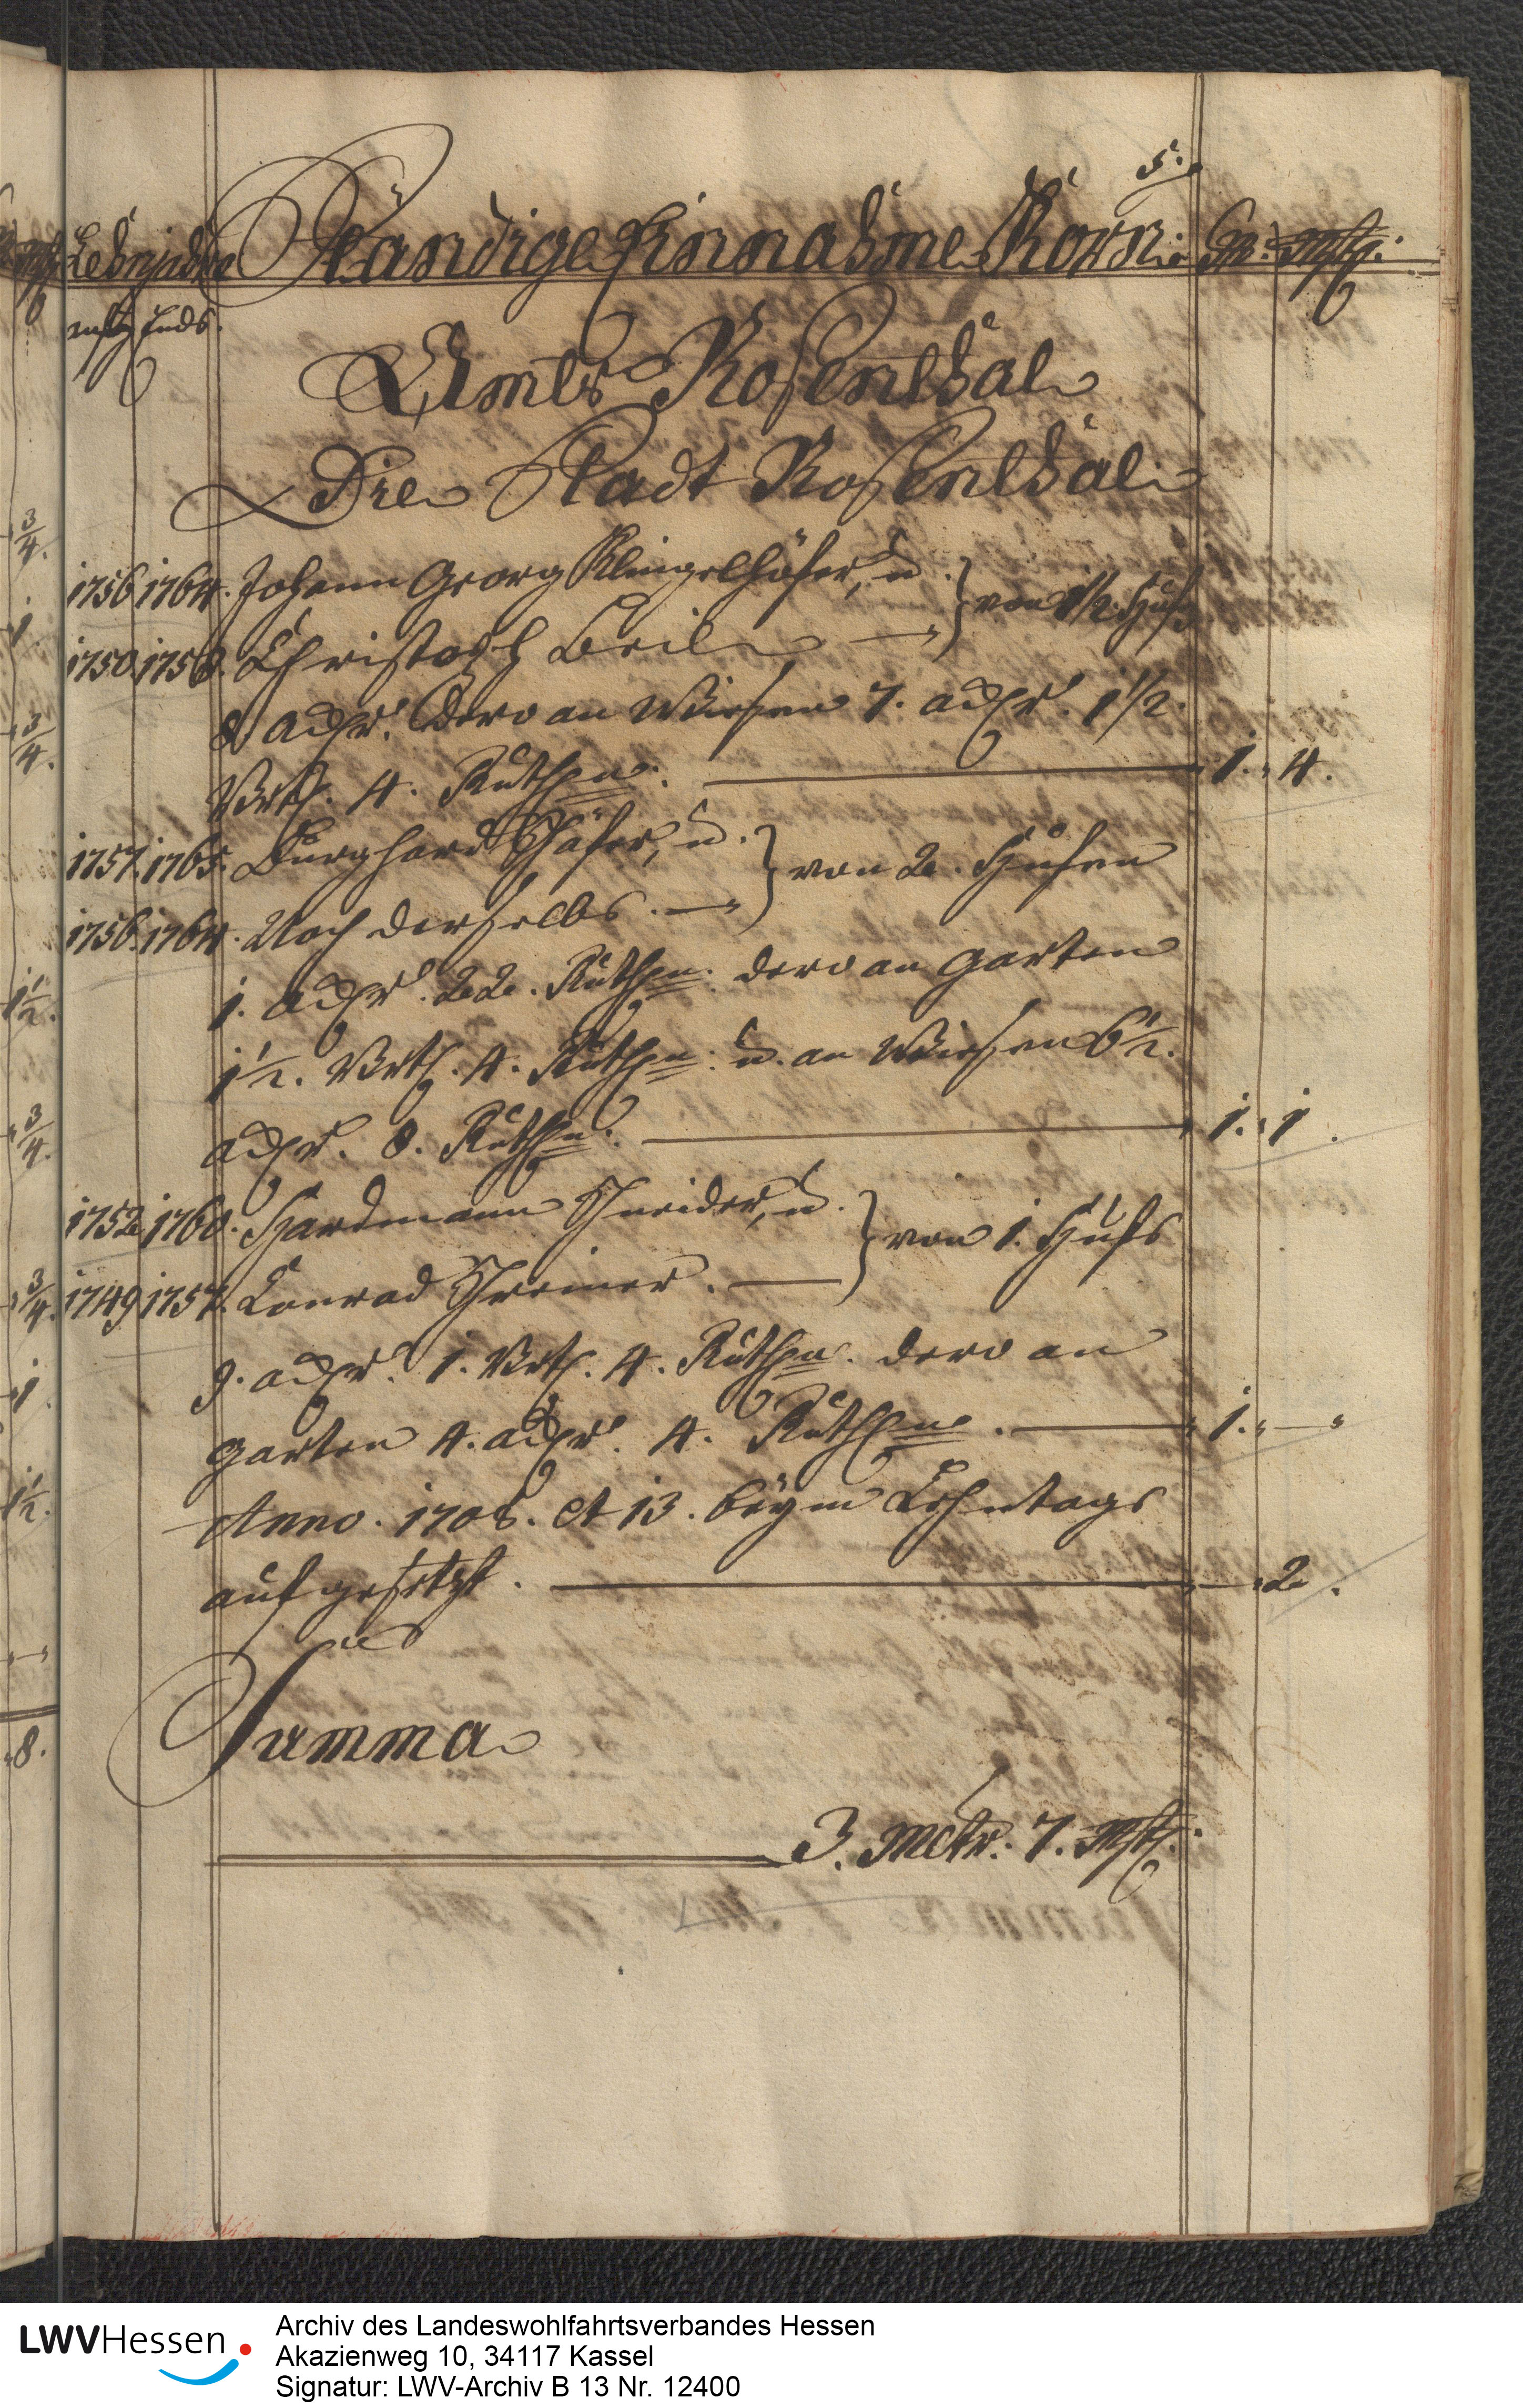 5.
Lehnjahre Ständige Einnahme Korn. Mr. Mste.
Amts Rosenthal
Die Stadt Rosenthal
1756. 1764. Johann Georg Klingelhöfer, u. } von 1 1/2. Hufe
1750. 1758. Christoph Beil
8 Ackr. Dero an Wiesen 7. ackr. 1 1/2.
Vrtl. 4. Ruthen. 1. 4.
1757. 1765. Burghard Schäfer, u. } von 2. Hufen
1756. 1764. Noch derselbe.
1. ackr. 22. Ruthen. dero an Garten
1 1/2. Vrtl. 4. Ruthen. u. an Wiesen 6 1/2.
ackr. 8. Ruthen. 1. 1.
1752. 1760. Hardmann Schneider, u. } von 1. Hufe
1749. 1757. Conrad Schreiner.
9. ackr. 1. Vrtl. 4. Ruthen. dero an
Garten 4. ackr. 4. Ruthen. 1. —
Anno. 1708. et 13. beym Lehntage
aufgesetzt. — 2.
Summa
3. Mttr. 7. Mste.
3/4.
1
3/4.
1 1/2.
3/4.
3/4.
1
1 1/2.
8.
LWVHessen
Archiv des Landeswohlfahrtsverbandes Hessen
Akazienweg 10, 34117 Kassel
Signatur: LWV-Archiv B 13 Nr. 12400